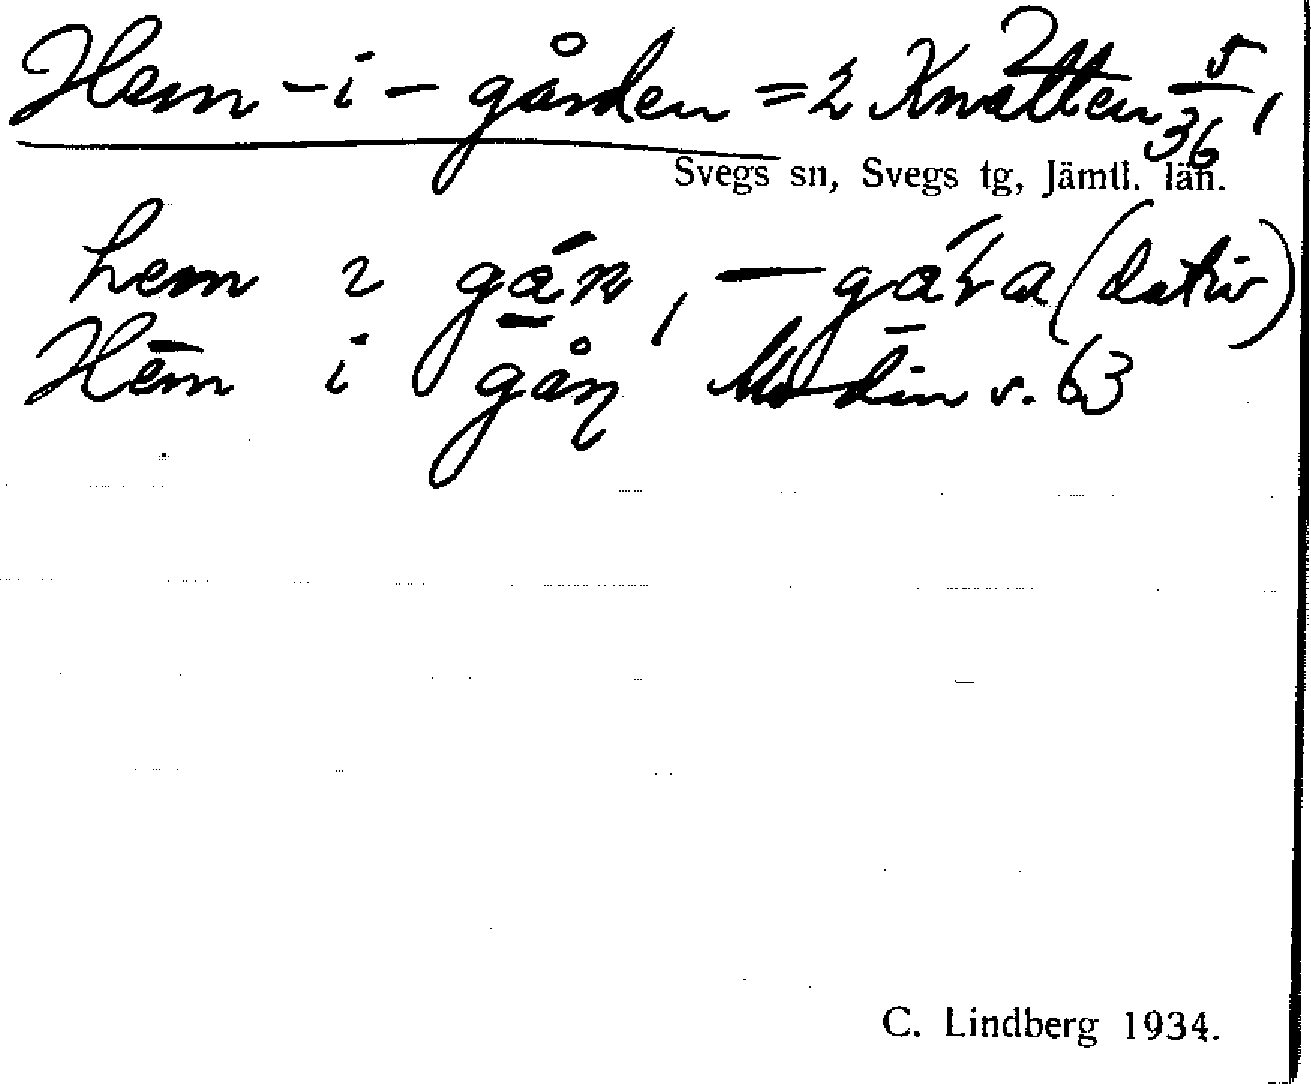 Hem-i-gården = 2 Knätten 5/36,
Svegs sn, Svegs tg, Jämtl. län.
hem i gá̠n, — gá̠ra (dativ)
Hēm i gån Modin s. 63
C. Lindberg 1934.